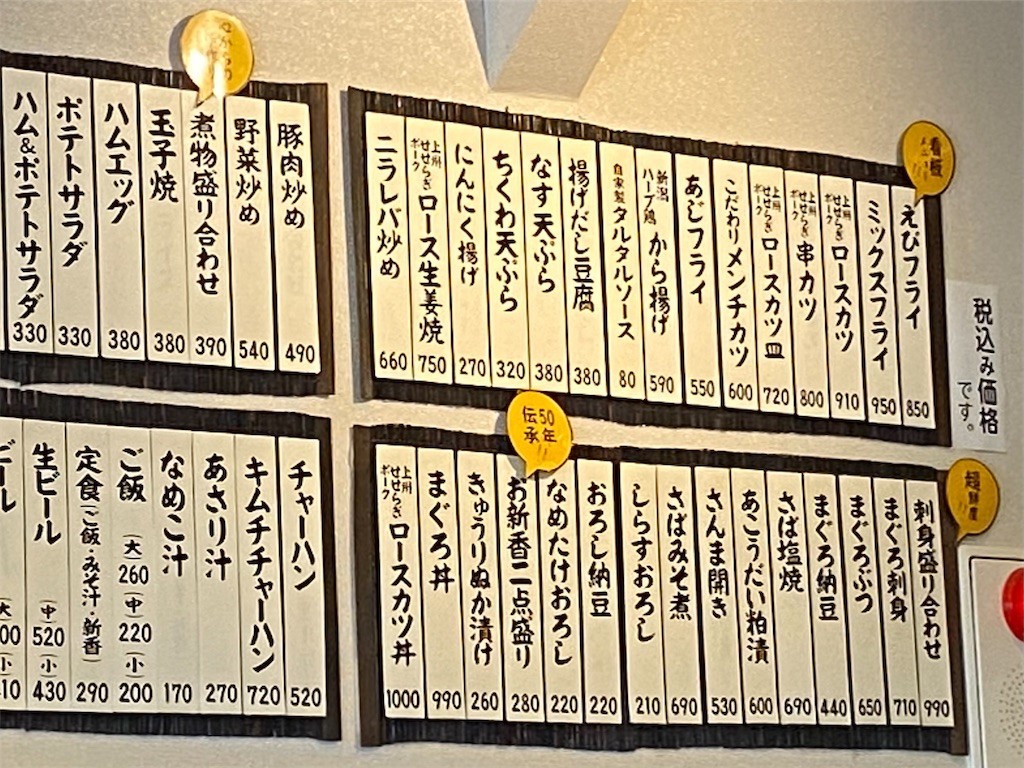 看板
えびフライ 850
ミックスフライ 950
上州せせらぎポーク ロースカツ 910
上州せせらぎポーク 串カツ 800
上州せせらぎポーク ロースカツ皿 720
こだわりメンチカツ 600
あじフライ 550
新潟ハーブ鶏 から揚げ 590
自家製タルタルソース 80
揚げだし豆腐 380
なす天ぷら 380
ちくわ天ぷら 320
にんにく揚げ 270
上州せせらぎポーク ロース生姜焼 750
ニラレバ炒め 660
豚肉炒め 490
野菜炒め 540
煮物盛り合わせ 390
玉子焼 380
ハムエッグ 380
ポテトサラダ 330
ハム&ポテトサラダ 330
税込み価格
です。
超鮮度
刺身盛り合わせ 990
まぐろ刺身 710
まぐろぶつ 650
まぐろ納豆 440
さば塩焼 690
あこうだい粕漬 600
さんま開き 530
さばみそ煮 690
しらすおろし 210
おろし納豆 220
なめたけおろし 220
50年
伝承
お新香二点盛り 280
きゅうりぬか漬け 260
まぐろ丼 990
上州せせらぎポーク ロースカツ丼 1000
チャーハン 520
キムチチャーハン 720
あさり汁 270
なめこ汁 170
ご飯 (大)260 (中)220 (小)200
定食(ご飯・みそ汁・新香) 290
生ビール (中)520 (小)430